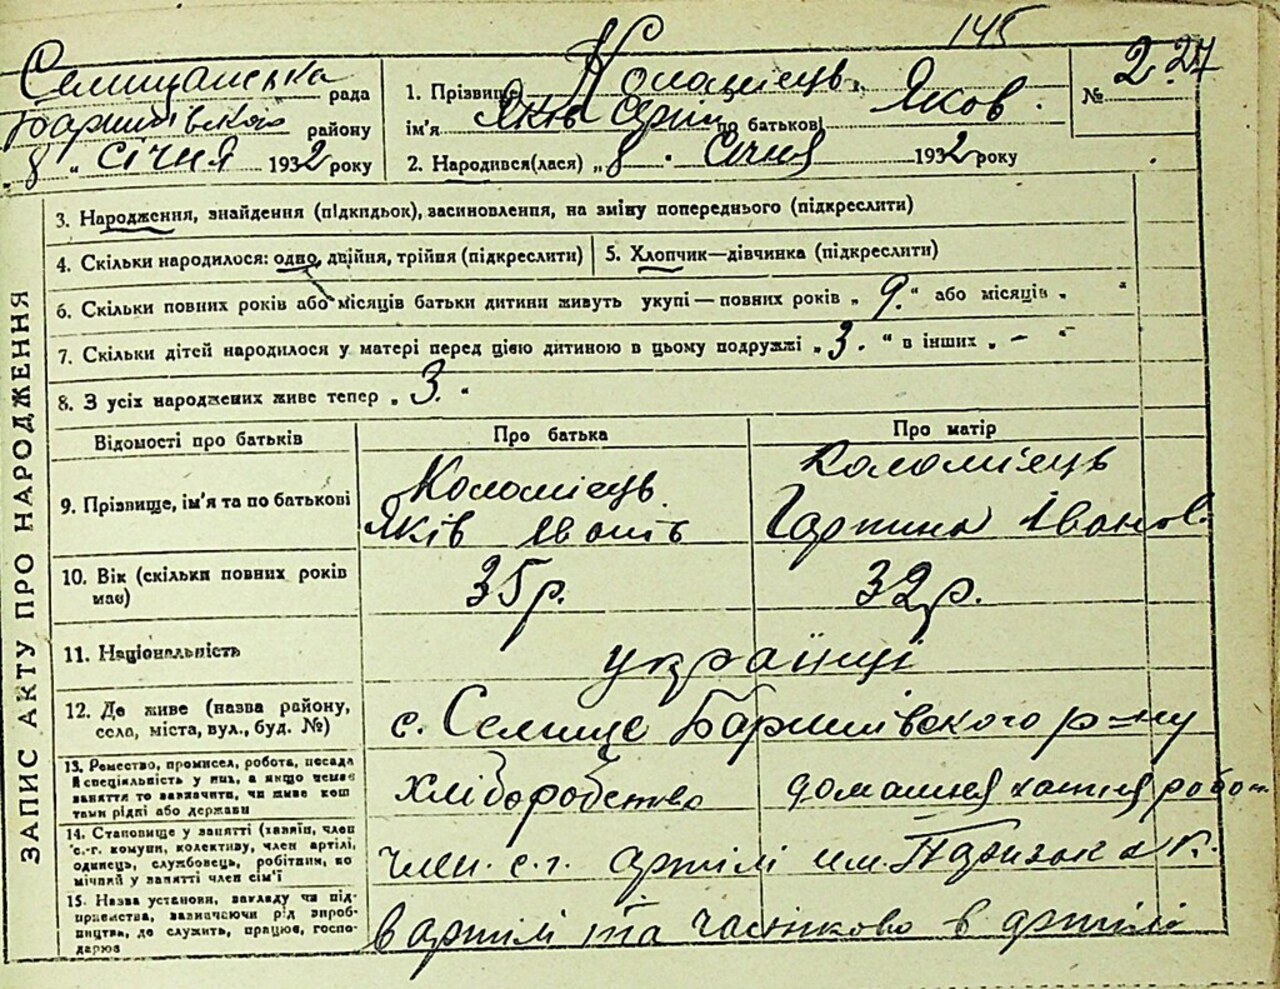 145
Селищанська рада
Баришівського району
„ 8 “ січня 1932 року
1. Прізвище Коломієць.
ім'я Яків Сергій по батькові Яков.
2. Народився(лася) „ 8 . Січня 1932 року
№ 2. 27
ЗАПИС АКТУ ПРО НАРОДЖЕННЯ
3. Народження, знайдення (підкидьок), засиновлення, на зміну попереднього (підкреслити)
4. Скільки народилося: одно, двійня, трійня (підкреслити)
5. Хлопчик—дівчинка (підкреслити)
6. Скільки повних років або місяців батьки дитини живуть укупі — повних років „ 9. “ або місяців „ “
7. Скільки дітей народилося у матері перед цією дитиною в цьому подружжі „ 3. “ в інших „ – “
8. З усіх народжених живе тепер „ 3. “
Відомості про батьків
Про батька
Про матір
9. Прізвище, ім'я та по батькові
Коломієць
Яків Іванів
Коломієць
Гарпина Іванов.
10. Вік (скільки повних років
має)
35 р.
32 р.
11. Національність
українці
12. Де живе (назва району,
села, міста, вул., буд. №)
с. Селище Баришівського р=ну
13. Ремество, промисел, робота, посада
й спеціяльність у них, а якщо немає
заняття то зазначити, чи живе кош
тами рідні або держави
хліборобство
домашня хатня робот.
14. Становище у занятті (хазяїн, член
с.-г. комуни, колективу, член артілі,
одинець, службовець, робітник, по
мічний у занятті член сім'ї
член. с.г. артілі им.
15. Назва установи, закладу чи під-
приємства, зазначаючи рід вироб-
ництва, де служить, працює, госпо-
дарює
в артілі та частково в артілі